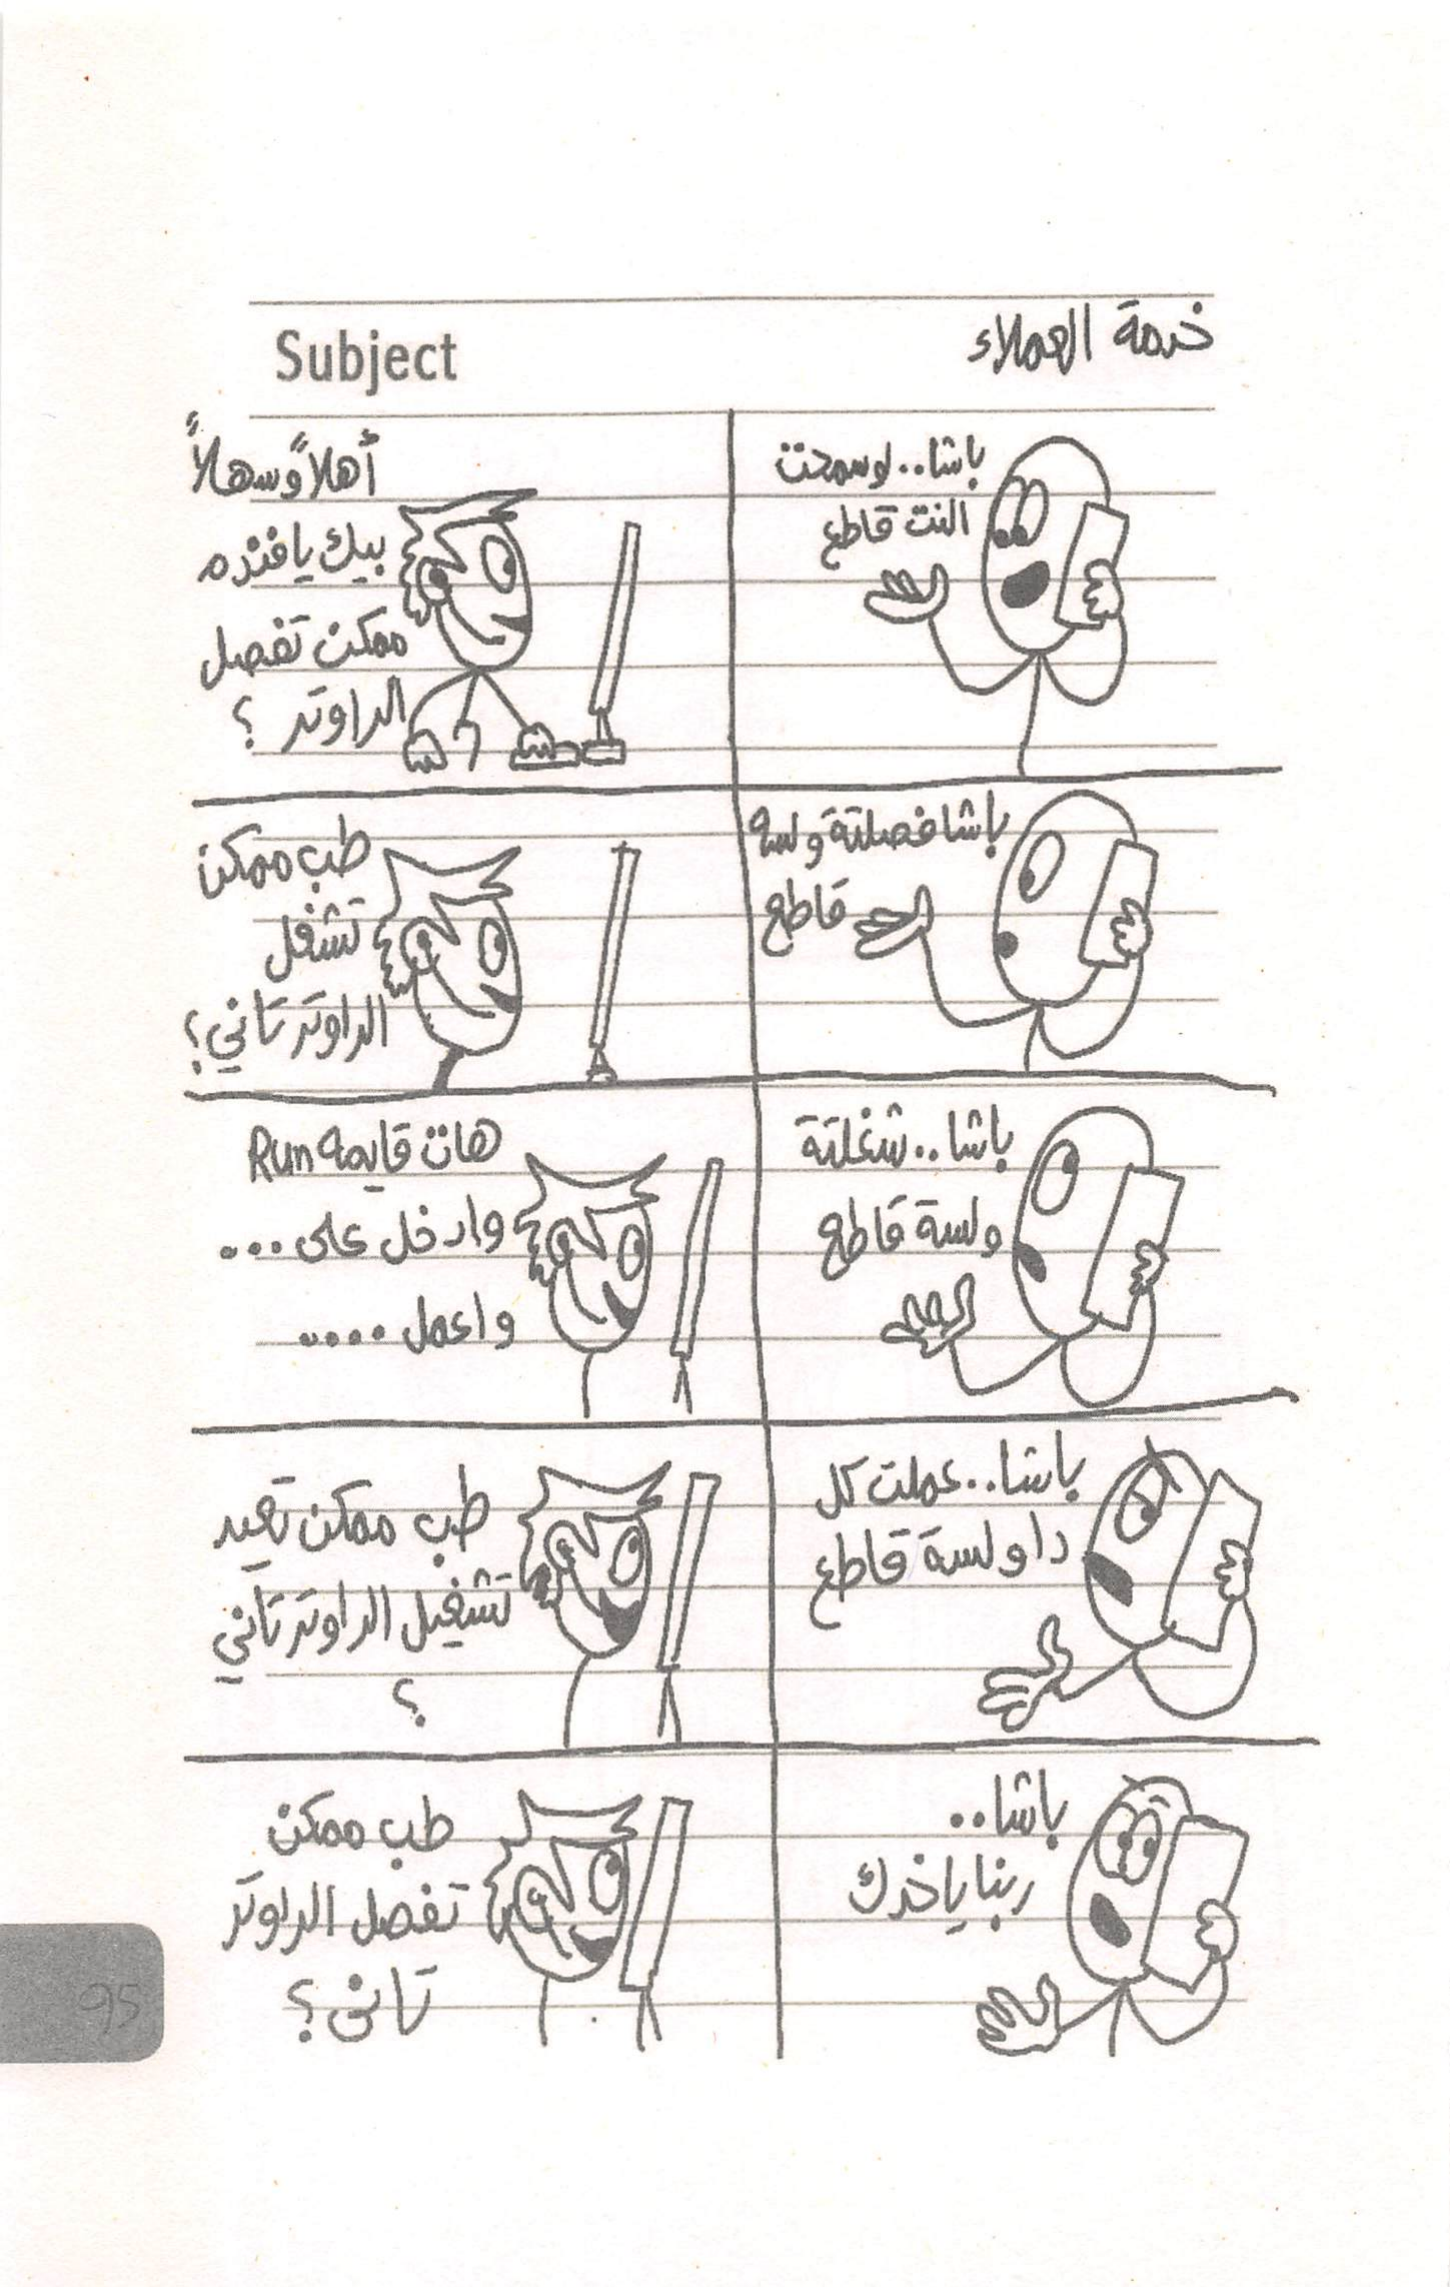 Subject
خدمة العملاء
باشا.. لو سمحت
النت قاطع
أهلاً وسهلاً
بيك يا فندم
ممكن تفصل
الراوتر ؟
باشا فصلتة ولسه
قاطع
طب ممكن
تشغل
الراوتر تاني؟
باشا.. شغلتة
ولسة قاطع
هات قايمه Run
وادخل على ...
واعمل .....
باشا.. عملت كل
دا ولسة قاطع
طب ممكن تعيد
تشغيل الراوتر تاني
؟
باشا..
ربنا ياخدك
طب ممكن
تفصل الراوتر
تاني؟
95